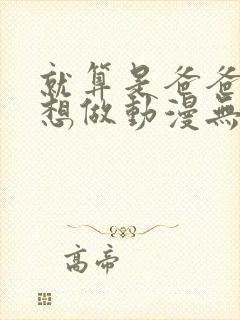 就算是爸爸
想做動漫無
高帝